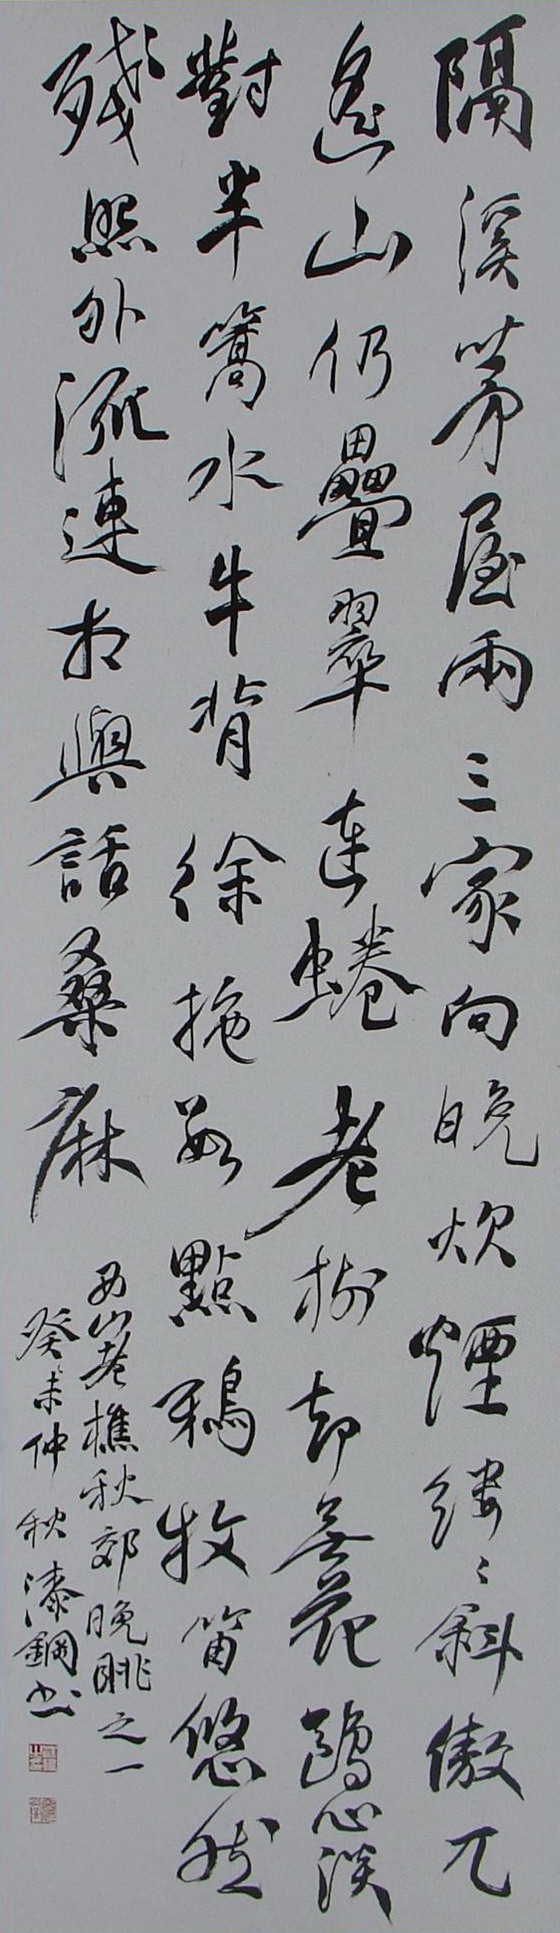 隔溪茅屋兩三家向晚炊煙縷〻斜傲兀
遙山仍疊翠連蜷老樹却無花鷗心淡
對半篙水牛背徐拖數點鴉牧笛悠然
殘照外流連相與話桑麻
丑山老樵秋郊晚眺之一
癸未仲秋漆鋼書